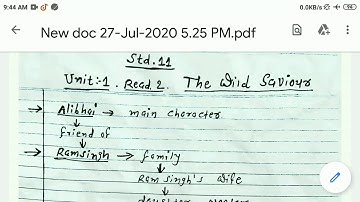 9:44 AM
0.0KB/s
94
New doc 27-Jul-2020 5.25 PM.pdf
Std. 11
Unit:-1. Read.2. The Wild Saviour
→ Alibhai → main character
↓
friend of
↓
→ Ramsingh → family
↓
Ramsingh's wife
↓